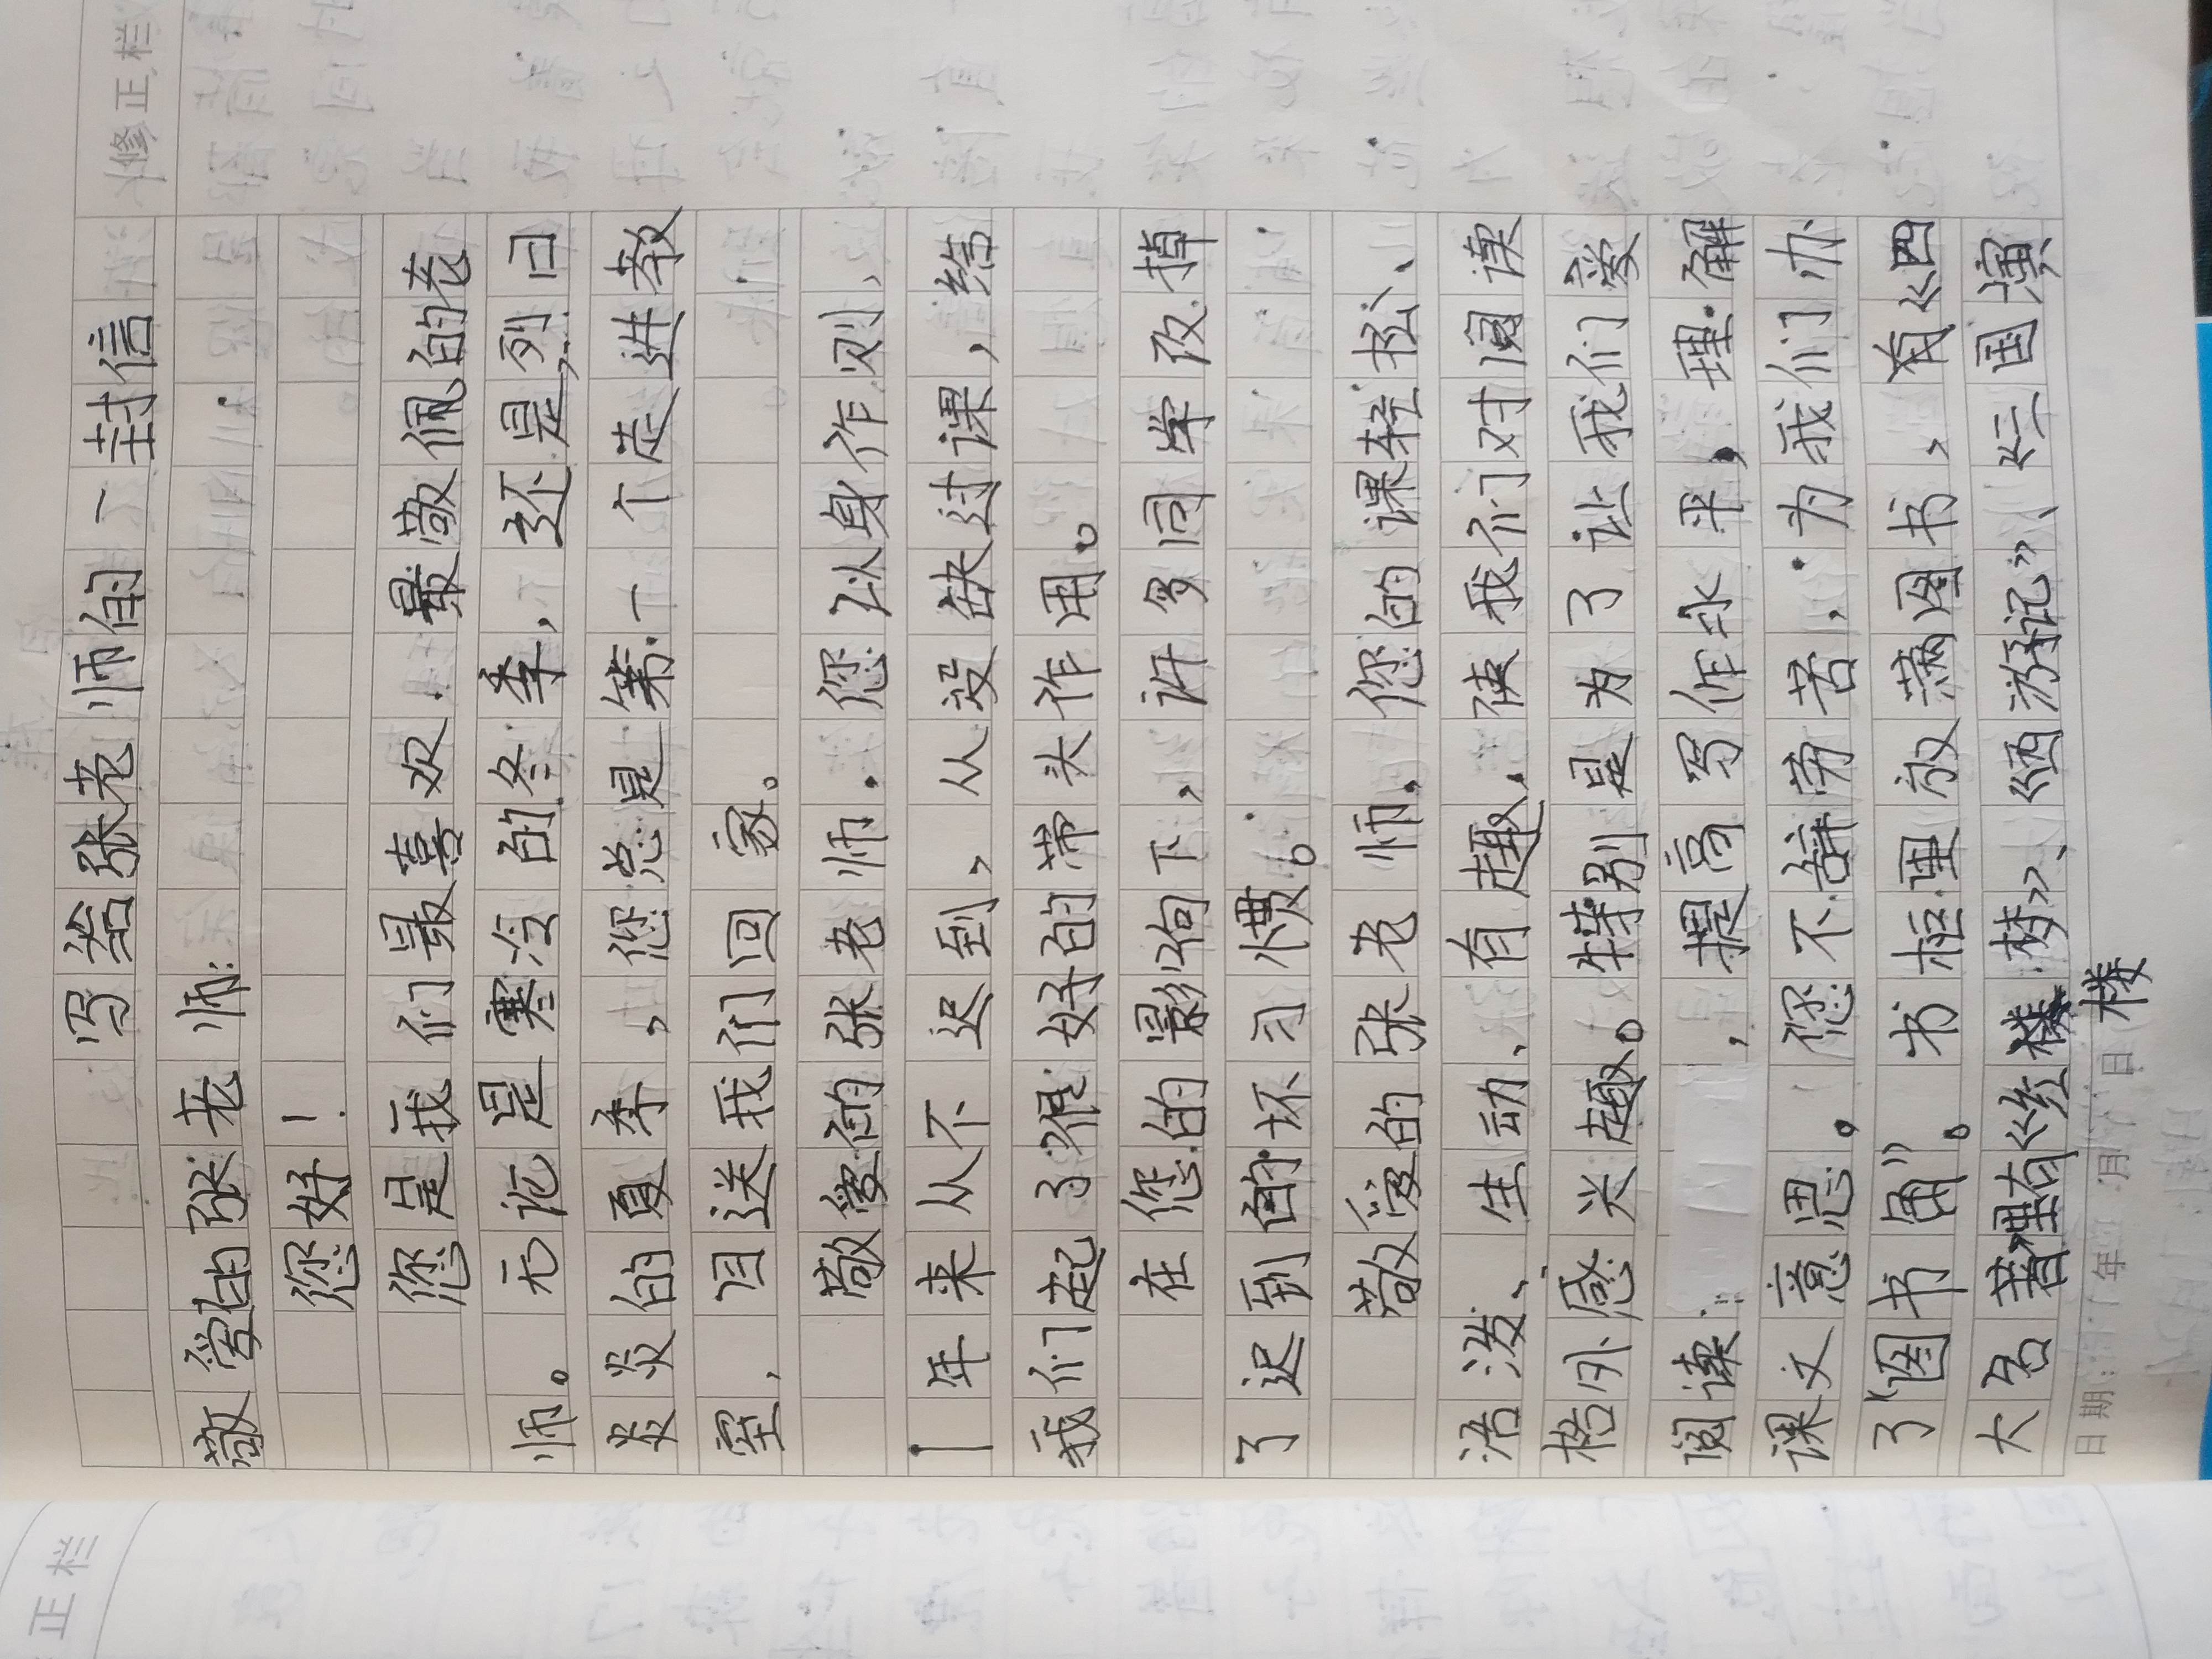 修正栏
写给张老师的一封信
敬爱的张老师:
您好!
您是我们最喜欢.最敬佩的老
师。无论是寒冷的冬季,还是烈日
炎炎的夏季,您总是第一个走进教
室,目送我们回家。
敬爱的张老师.您以身作则,
一年来从不迟到,从没缺过课,给
我们起了很好的带头作用。
在您的影响下,许多同学改掉
了迟到的坏习惯。
敬爱的张老师,您的课轻松、
活泼、生动、有趣,使我们对阅读
格外感兴趣。特别是为了让我们爱
阅读,提高写作水平,理解
课文意思。您不辞劳苦,为我们办
了“图书角”。书柜里放满图书,有《四
大名著》里有《红楼梦》、《西游记》、《三国演
楼
日期: 年 月 日
正栏